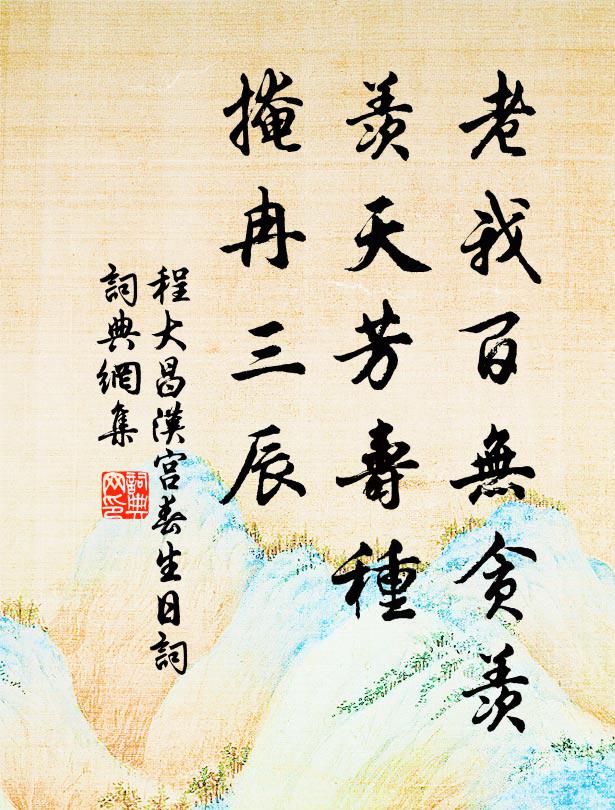 老我百無貪羨
羨天芳壽種
掩冉三辰
程大昌漢宮春生日詞
詞典網集
詞典
网印